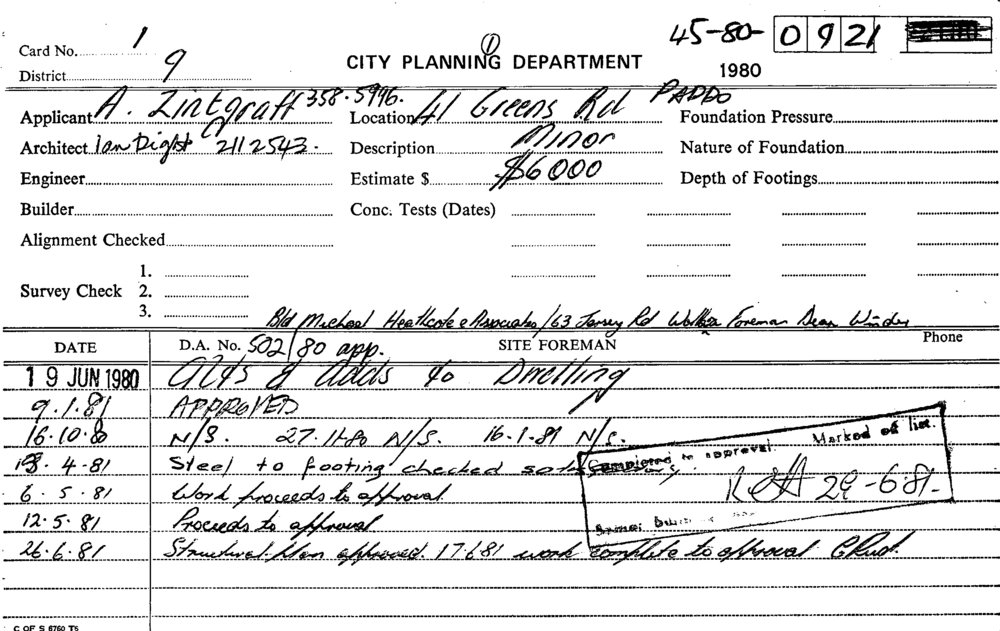 45-80- 0921
Card No. 1
District 9
CITY PLANNING DEPARTMENT
1980
Applicant A. Zintgraff 358.5996.
Location 41 Greens Rd PADDO
Foundation Pressure
Architect Ian Dight 211 2543.
Description Minor
Nature of Foundation
Engineer
Estimate $ $6000
Depth of Footings
Builder
Conc. Tests (Dates)
Alignment Checked
Survey Check
1.
2.
3.
Bld Michael Heathcote & Associates / 63 Jersey Rd Foreman Dean
DATE
D.A. No. 502/80 app.
SITE FOREMAN
Phone
19 JUN 1980 Alts & Adds to Dwelling
9.1.81 APPROVED
16.10.80 N/S. 27.11.80 N/S. 16.1.81 N/S.
4.81 Steel to footing checked
6.5.81 Work proceeds to approval
12.5.81 Proceeds to approval
26.6.81 Structural plan approved. 17.6.81 work complete to approval
Completed to approval. Marked off list.
29-6-81-
C OF S 6760 T5